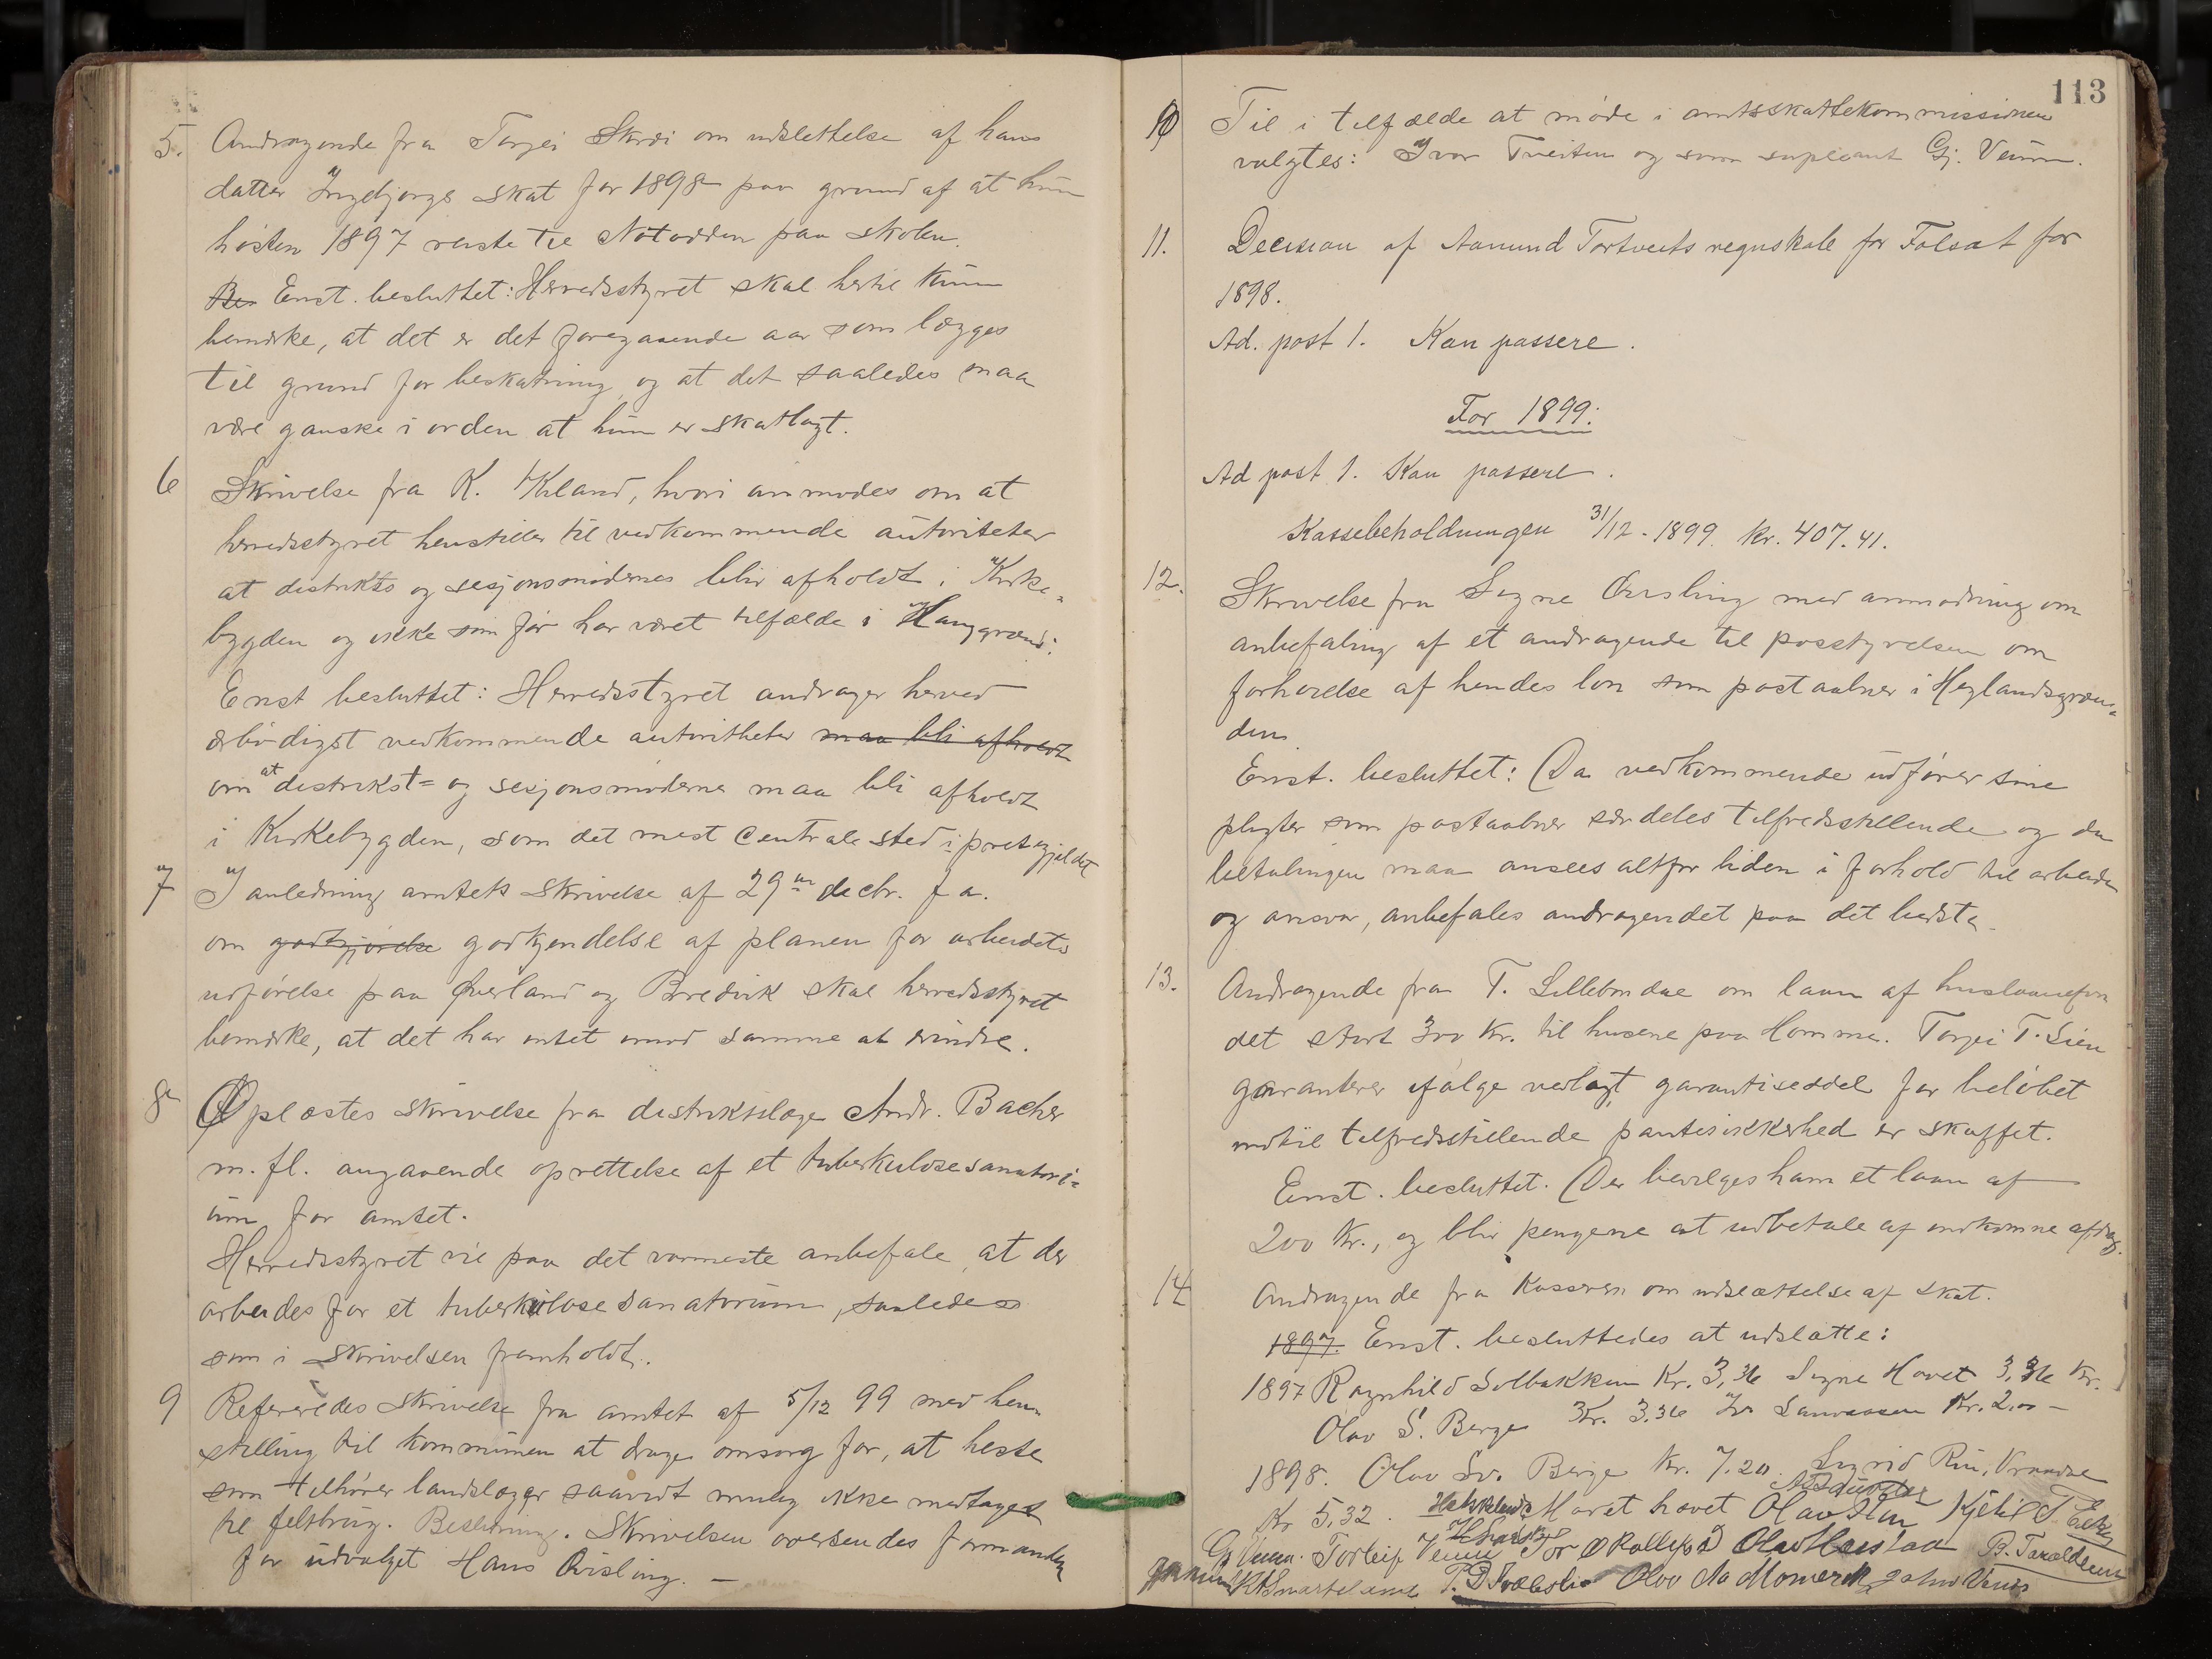 5. Andragende fra Torjei Skrei om udslettelse af hans
datter Ingebjorgs skat for 1898 paa grund af at hun
høsten 1897 reiste til Notodden paa skolen.
Bes Enst. besluttet: Herredsstyret skal hertil kun
bemærke, at det er det foregaaende aar som lægges
til grund for beskatning og at det saaledes maa
være ganske i orden at hun er skatlagt.
6 Skrivelse fra K. Kland, hvori anmodes om at
herredsstyret henstiller til vedkommende autoriteter
at distrikts og sesjonsmødernes blir afholdt i Kirke-
bygden og ikke som før har været tilfælde i Hauggrend.
Enst besluttet: Herredsstyret andrager herved
ærbødigst vedkommende autoritheter maa bli afholdt
om at distrikst= og sesjonsmøderne maa bli afholdt
i Kirkebygden, som det mest centrale sted i prestegjeldet
7 I anledning amtets skrivelse af 29de decbr. f a.
om godtgjørelse godkjendelse af planen for arbeidets
udførelse paa Øverland og Bredvik skal herredsstyret
bemærke, at det har intet imod samme at erindre.
8 Oplæstes skrivelse fra distriktslæge Andr. Backer
m. fl. angaaende oprettelse af et tuberkulosesanatori=
um for amtet.
Herredsstyret vil paa det varmeste anbefale, at der
arbeides for et tuberkulosesanatorium, saaledes
som i skrivelsen fremholdt.
9 Refereredes skrivelse fra amtet af 5/12 99 med hen-
stilling til kommunen at drage omsorg for, at heste
som tilhører landslæger saavidt mulig ikke medtages
til feltbrug. Beslutning. Skrivelsen oversendes formanden
for udvalget Hans Qvisling. —
113
10 Til i tilfælde at møde i amtsskattekommissionen
valgtes: Ivar Tveiten og som supleant Gj. Veum.
11. Decision af Aanund Tortveits regnskab for Folsat for
1898.
Ad. post 1. Kan passere.
For 1899:
Ad post 1. Kan passere.
Kassebeholdningen 31/12 - 1899. kr. 407.41.
12. Skrivelse fra Signe Qvisling med anmodning om
anbefaling af et andragende til poststyrelsen om
forhøielse af hendes løn som postaabner i Heglandsgren-
den
Enst. besluttet: Da vedkommende udfører sine
pligter som postaabner særdeles tilfredsstillende og da
betalingen maa ansees altfor liden i forhold til arbeide
og ansvar, anbefales andragendet paa det bedste.
13. Andragende fra T. Lillebondal om laan af huslaanefon
det stort 300 kr. til husene paa Homme. Torjei T. Lien
garanterer ifølge vedlagt garantiseddel for beløbet
indtil tilfredsstillende pantesikkerhed er skaffet.
Enst. besluttet. Der bevilges ham et laan af
200 kr., og blir pengene at udbetale af indkomne afdrag.
14 Andragende fra Kassereren om udslættelse af skat.
1897. Enst. besluttedes at udslætte:
1897 Ragnhild Solbakken Kr. 3,36 Signe Hovet 3,36 kr.
Olav S. Berge Kr. 3.36 Kr. 2.00 -
1898. Olav Sv. Berge kr. 7.20. Sigrid Rui, Vraadal
Kr 5,32. Marat hovet Olav Kjetil T.
Gj Veum. Torleif Veum Tor Olav B. Taraldsen
Olav Aa Momrak John Veum